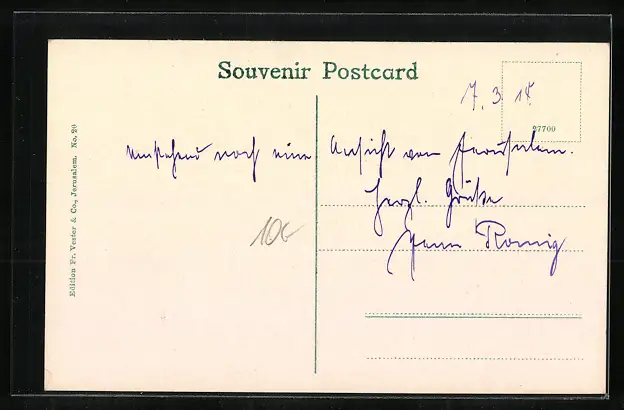 Souvenir Postcard
7. 3. 18.
27700
Umstehend noch eine Ansicht von Jerusalem.
Herzl. Grüße
Romig
10.-
Edition Fr. Vester & Co., Jerusalem. No. 20